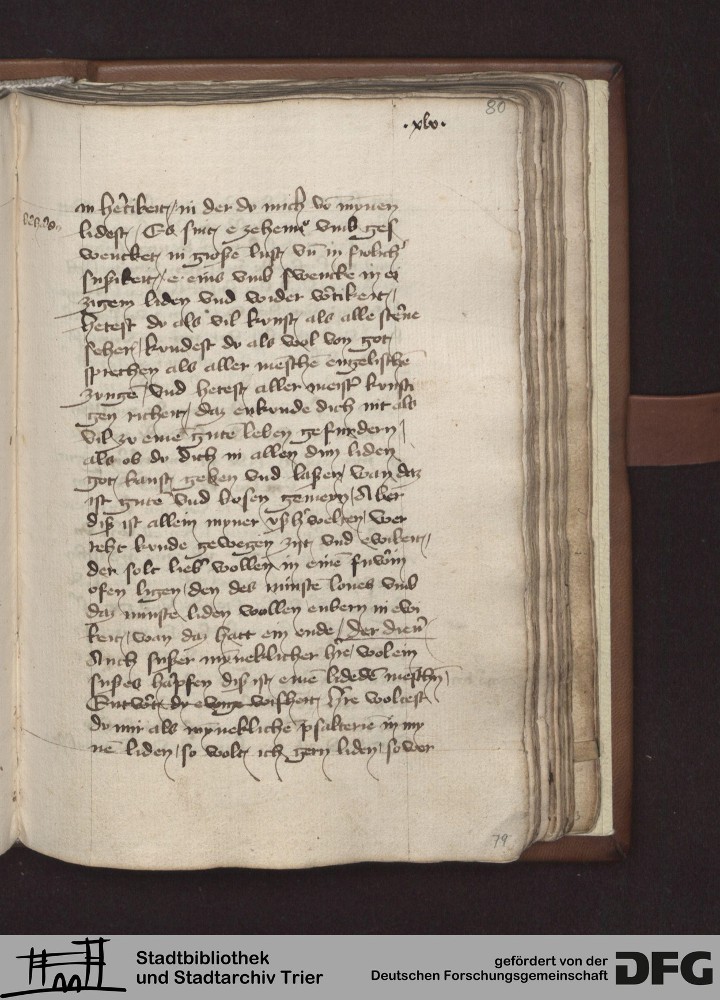 80
·xlv·
in h'tikeit / in der dv mich vō mynen
lidest / Es sint e zehen vmb ges
wencket in große lust vn̄ in frolich'
sußikeit / e eins vmb swencke in ei
zigem liden vnd wider w'tikeit /
hetest dv als vil kvnst als alle sterne
seher / kvndest dv als wol von got
sprechen als aller mēsche engelische
zvnge / vnd hetest aller meist' kvnst
gen richeit / daz enkvnde dich nit als
vil zv eime gutē leben gefurdern /
als ob dv dich in allen din liden
got kanst geben vnd laßen / wan daz
ist gutē vnd bosen gemeyn / Aber
diß ist allein myner vßh'welten / wer
reht kvnde gewegen zijt vnd ewikeit /
der solt lieb' wollen in eimē fuw'in
ofen ligen / den des minstē lones vmb
daz minste liden wollen enbern in ewi
keit / wan daz hatt ein ende / Der dien'
Auch sußer mȳneklicher h're / wol ein
sußes harpfen diß ist / eime lidēdē mēschn̄
Entw't dy ewige wißheit H're woltest
dv mir als mȳnekliche psalterie in my
nē liden / so wolt ich gern liden / so wer
79
Stadtbibliothek
und Stadtarchiv Trier
gefördert von der
Deutschen Forschungsgemeinschaft
DFG